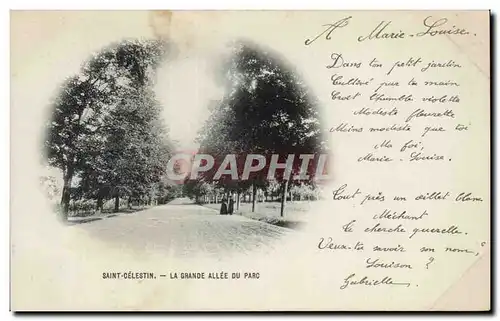 A Marie-Louise.
Dans ton petit jardin
Cultivé par ta main
Croît l'humble violette
Modeste fleurette
Moins modeste que toi
Ma foi,
Marie-Louise.
Tout près un œillet blanc
Méchant
Te cherche querelle.
Veux-tu savoir son nom,
Louison ?
Gabrielle.
CPAPHIL.com
SAINT-CÉLESTIN. - LA GRANDE ALLÉE DU PARC